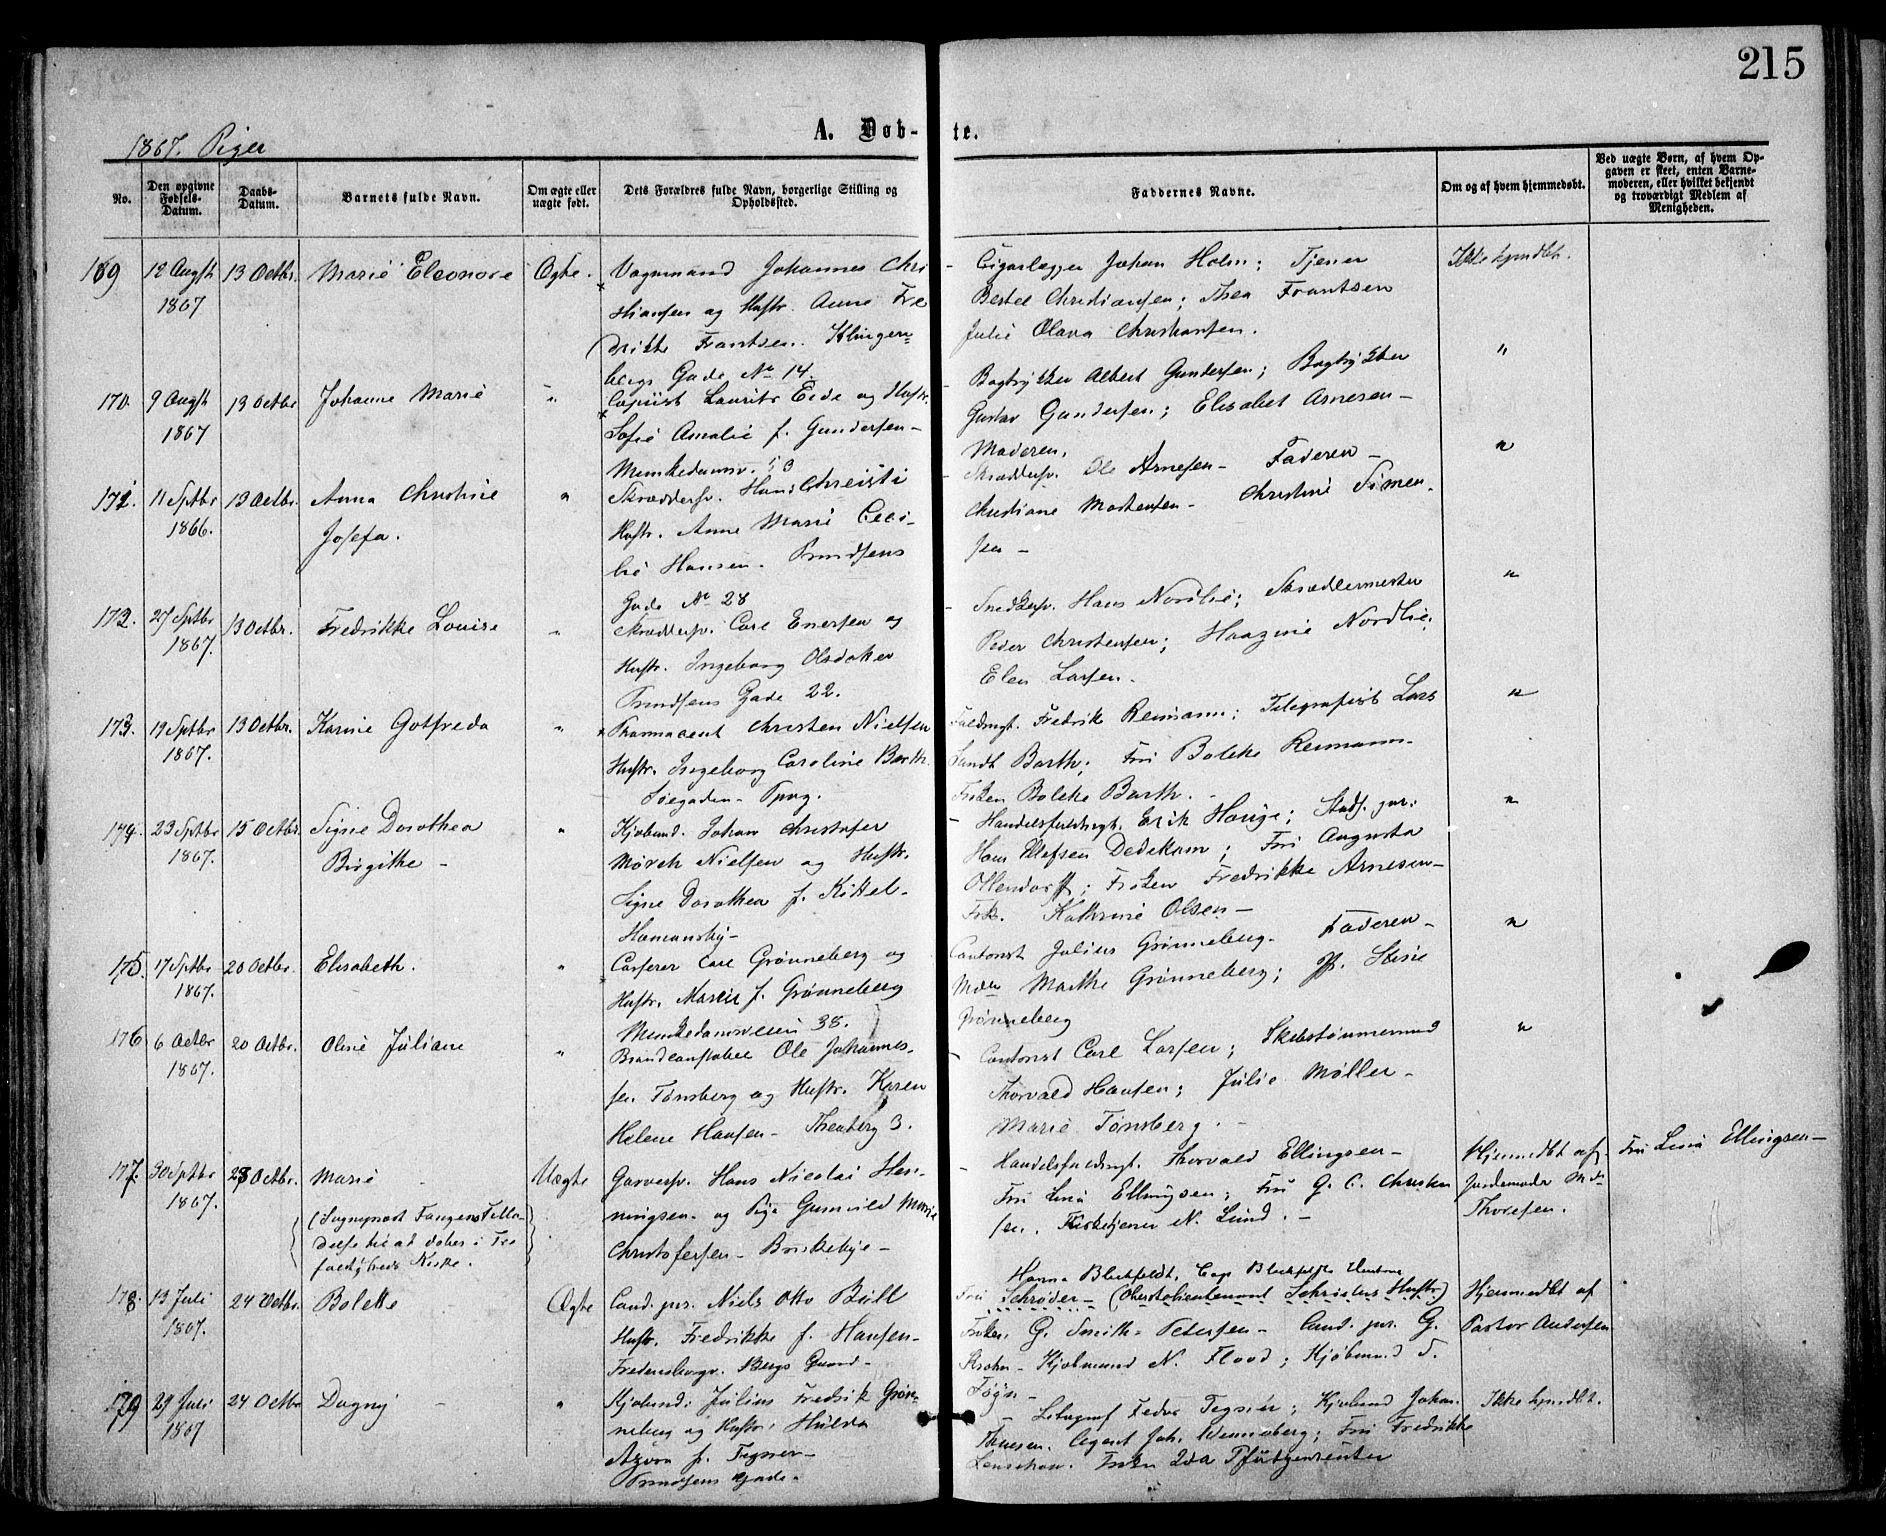 215
1867. Piger
A. Døb-te.
No.
Den opgivne Fødsels-Datum.
Daabs-Datum.
Barnets fulde Navn.
Om ægte eller uægte født.
Dets Forældres fulde Navn, borgerlige Stilling og Opholdssted.
Faddernes Navne.
Om og af hvem hjemmedøbt.
Ved uægte Børn, af hvem Opgaven er skeet, enten Barnemoderen, eller hvilket bekjendt og troværdigt Medlem af Menigheden.
169 12 Augst 1867 13 Octbr. Marie Eleonore Ægte.
Vognmand Johannes Chri
stiansen og Hustr. Anne Fre
drikke Frantsen. Klingen=
bergs Gade No 14.
Cigarlægger Johan Holm; Tjener
Bertel Christiansen; Thea Frantsen
Julie Olava Christiansen.
Ikke hjmdbt.
170. 9 Augst 1867 13 Octbr Johanne Marie "
Copiist Laurits Eide og Hustr.
Sofie Amalie f. Gundersen -
Munkedamsv. 53
Bogtrykker Albert Gundersen; Bogtrykker
Gustav Gundersen; Elisabet Arnesen -
Moderen.
"
171. 11 Septbr 1866. 13 Octbr. Anna Christine Josefa. "
Skræddersv. Hans Christi
Hustr. Anne Marie Ceci-
lie Hansen. Pundsens
Gade No 28
Skræddersv. Ole Arnesen - Faderen -
Christiane Mortensen - Christine Simen
sen -
"
172. 27 Septbr 1867. 13 Octbr. Fredrikke Louise "
Skræddersv. Carl Enersen og
Hustr. Ingeborg Olsdatter
Gade 22.
Snedkersv. Hans Nordlie; Skræddermester
Peder Christensen; Haagine Nordlie;
Elen Larsen.
"
173. 19 Septbr 1867. 13 Octbr. Karine Gotfreda "
Pharmaceut Christen Nielsen
Hustr. Ingeborg Caroline Barth
Søegaden -
Fuldmgt. Fredrik Reimann; Telegrafist Lars
Sundt Barth; Fru Bolette Reimann -
Frøken Bolette Barth. -
"
174. 23 Septbr 1867. 15 Octbr. Signe Dorothea Birgithe - "
Kjøbmd. Johan Christofer
Mørch Nielsen og Hustr.
Signe Dorothea f. Kittel-
Homansby -
Handelsfuldmgt. Erik Hauge; Stud. jur.
Hans Ellefsen Dedekam; Fru Augusta
Ollendorff; Frøken Fredrikke Arnesen -
Frk. Kathrine Olsen -
"
175. 17 Septbr 1867. 20 Octbr. Elisabeth. "
Carl Grønneberg og
Hustr. Marie f. Grønneberg
Munkedamsveien 38.
Cantonist Julius Grønneberg. Faderen -
Mdm Marthe Grønneberg; Stine
Grønneberg
"
176 6 Octbr 1867. 20 Octbr. Oline Juliane "
Brandconstabel Ole Johannes-
sen Tønsberg og Hustr. Karen
Helene Hansen - Theaterg 3.
Cantonist Carl Larsen; Skibstømmermand
Thorvald Hansen; Julie Møller -
Marie Tønsberg. -
"
177. 30 Septbr 1867. 23 Octbr. Marie Uægte
(Sognepræst Fangens Tilla-
delse til at døbes i Tre
foldigheds Kirke.
Garversv. Hans Nicolai Hen-
ningsen og Pige Gunnild Marie
Christofersen - Briskebye -
Handelsfuldmgt. Thorvald Ellingsen -
Fru Lina Ellingsen; Fru G. C. Christen
sen. Kirketjener N. Lund. -
Hjemmedbt af
Jordemoder Md
Thoresen.
Fru Lina Ellingsen -
178. 13 Juli 1867. 24 Octbr. Bolette Ægte
Cand. jur. Niels Otto Bull
Hustr. Fredrikke f. Hansen -
Fredensborgv. Bergs Gaard -
Hanna Blechfeldt, Capt Blechfeldts Hustru
Fru Schrøder - (Oberstlieutenant Schrøders Hustr)
Frøken G. Smith-Petersen - Cand. jur. G.
Krohn - Kjøbmand N. Flood; Kjøbmand S.
Føyn -
Hjemmedbt af
Pastor Andersen
179 29 Juli 1867 24 Octbr Dagny - "
Kjøbmd. Julius Fredrik Grøn-
neberg og Hustr. Hulda
f. Tegner -
Gade.
- Fedor Tegner; Kjøbmd Johan
Thuesen. Agent Joh. Wenneberg; Fru Fredrikke
Lenschow. Frøken Ida Pfützenreuter
Ikke hjmdbt.